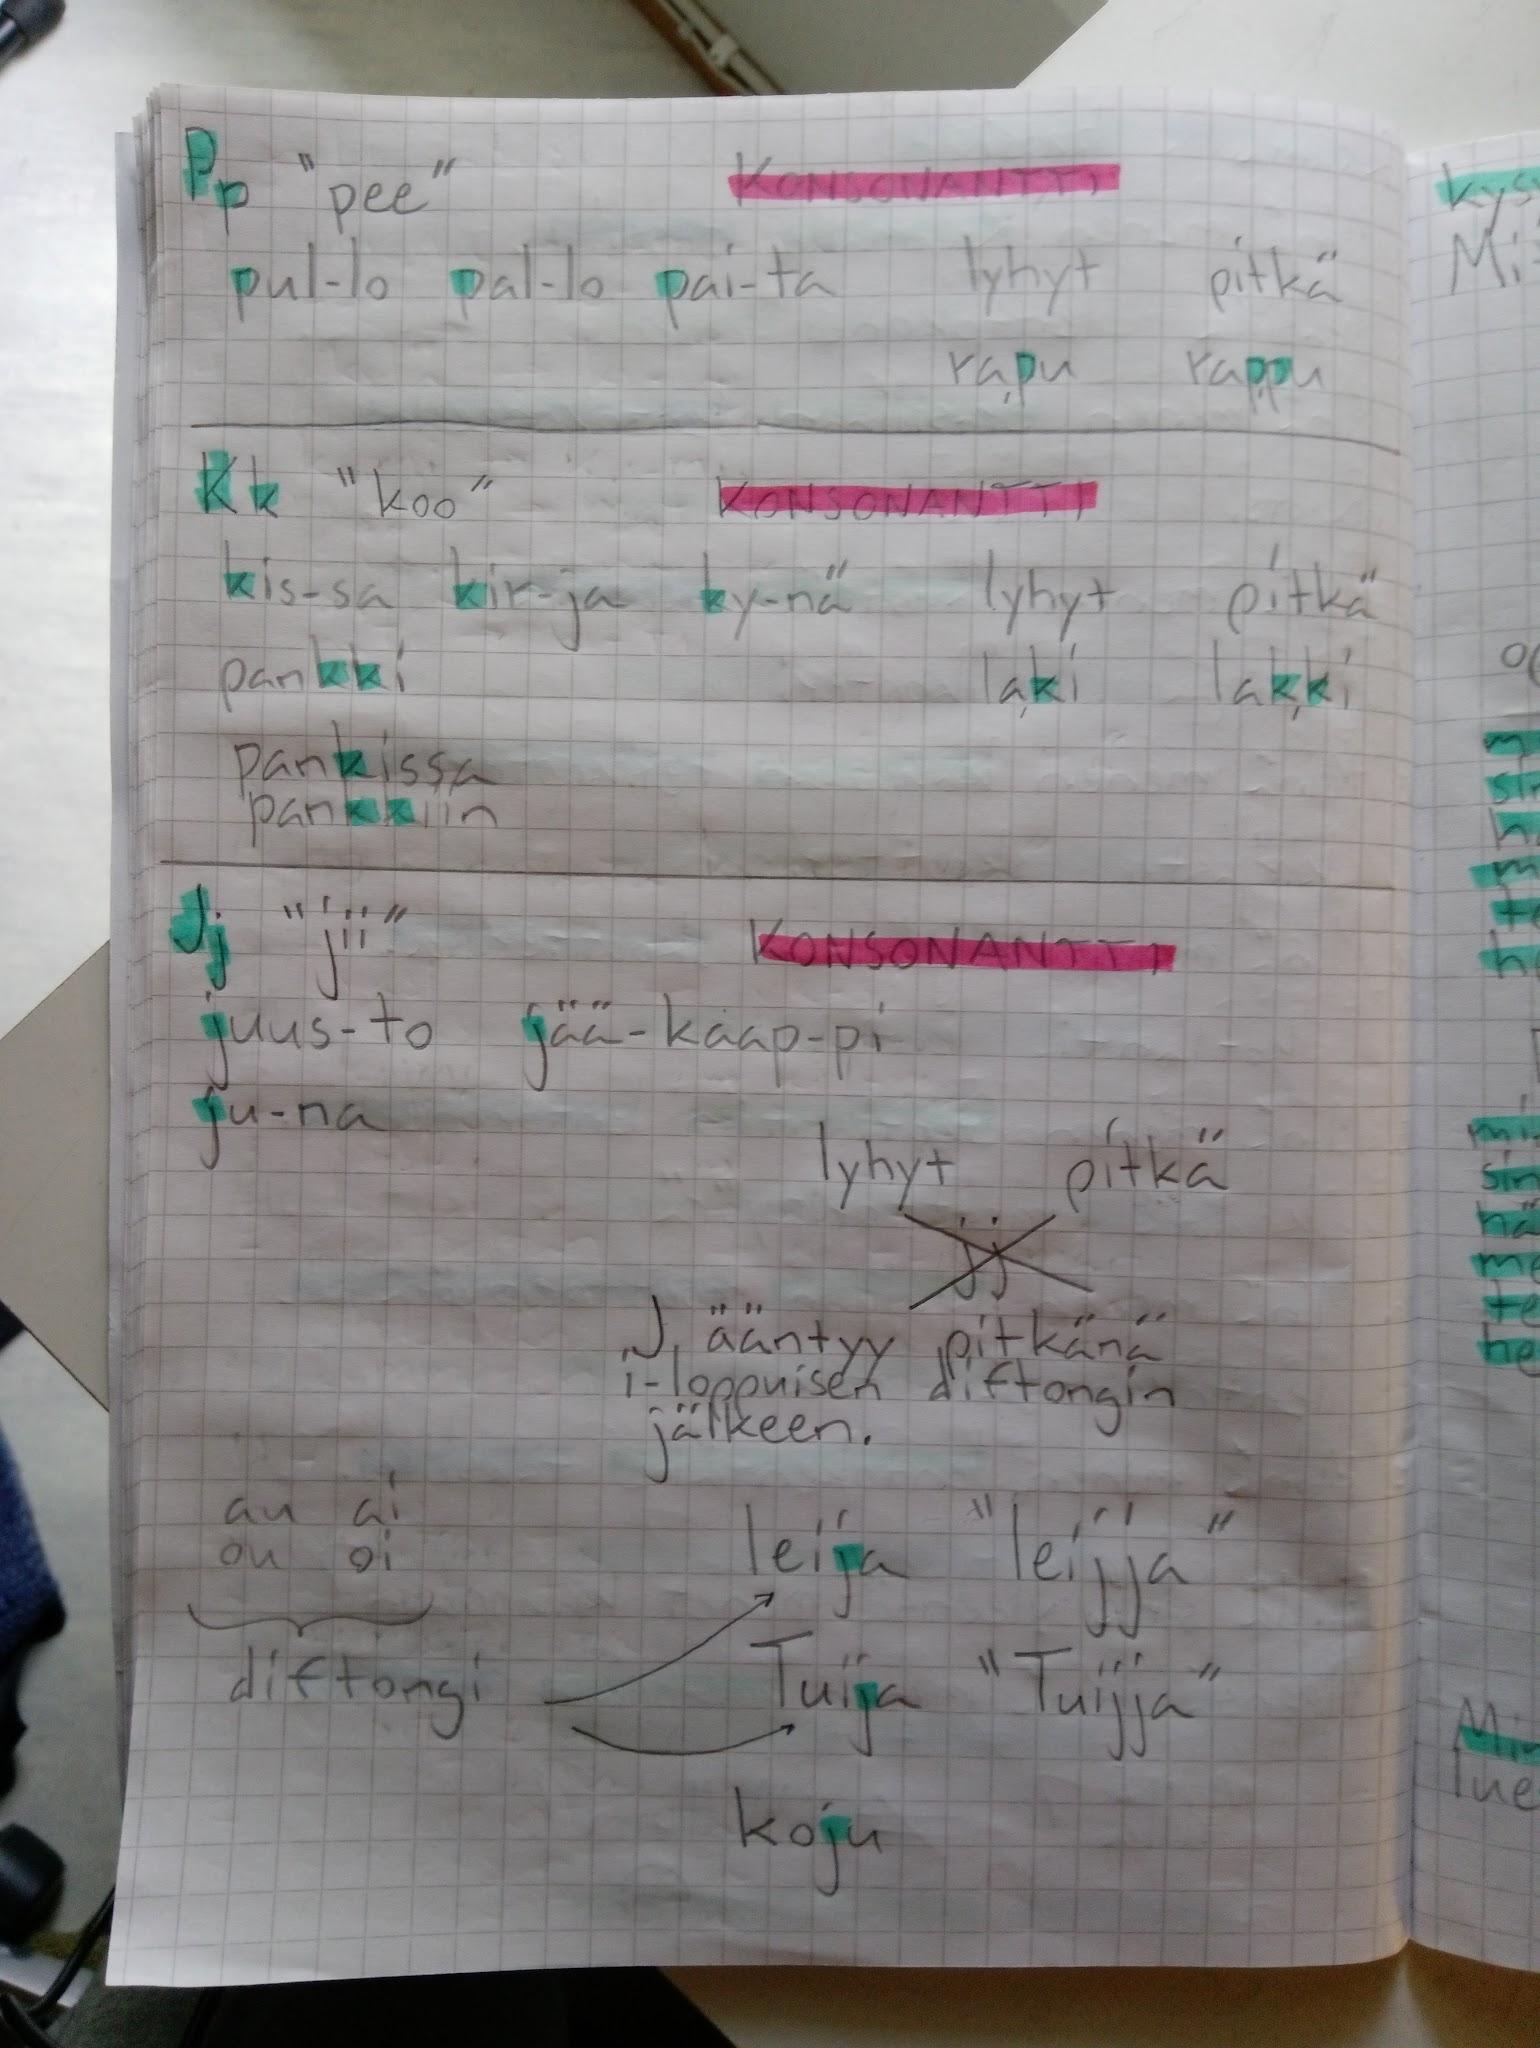 Pp "pee" KONSONANTTI
pul-lo pal-lo pai-ta lyhyt pitkä
rapu rappu
Kk "koo" KONSONANTTI
kis-sa kir-ja ky-nä lyhyt pitkä
pankki laki lakki
pankissa
pankkiin
Jj "jii" KONSONANTTI
juus-to jää-kaap-pi
ju-na
lyhyt pitkä
jj
J ääntyy pitkänä
i-loppuisen diftongin
jälkeen.
au ai
ou oi
leija "leijja"
diftongi
Tuija "Tuijja"
koju